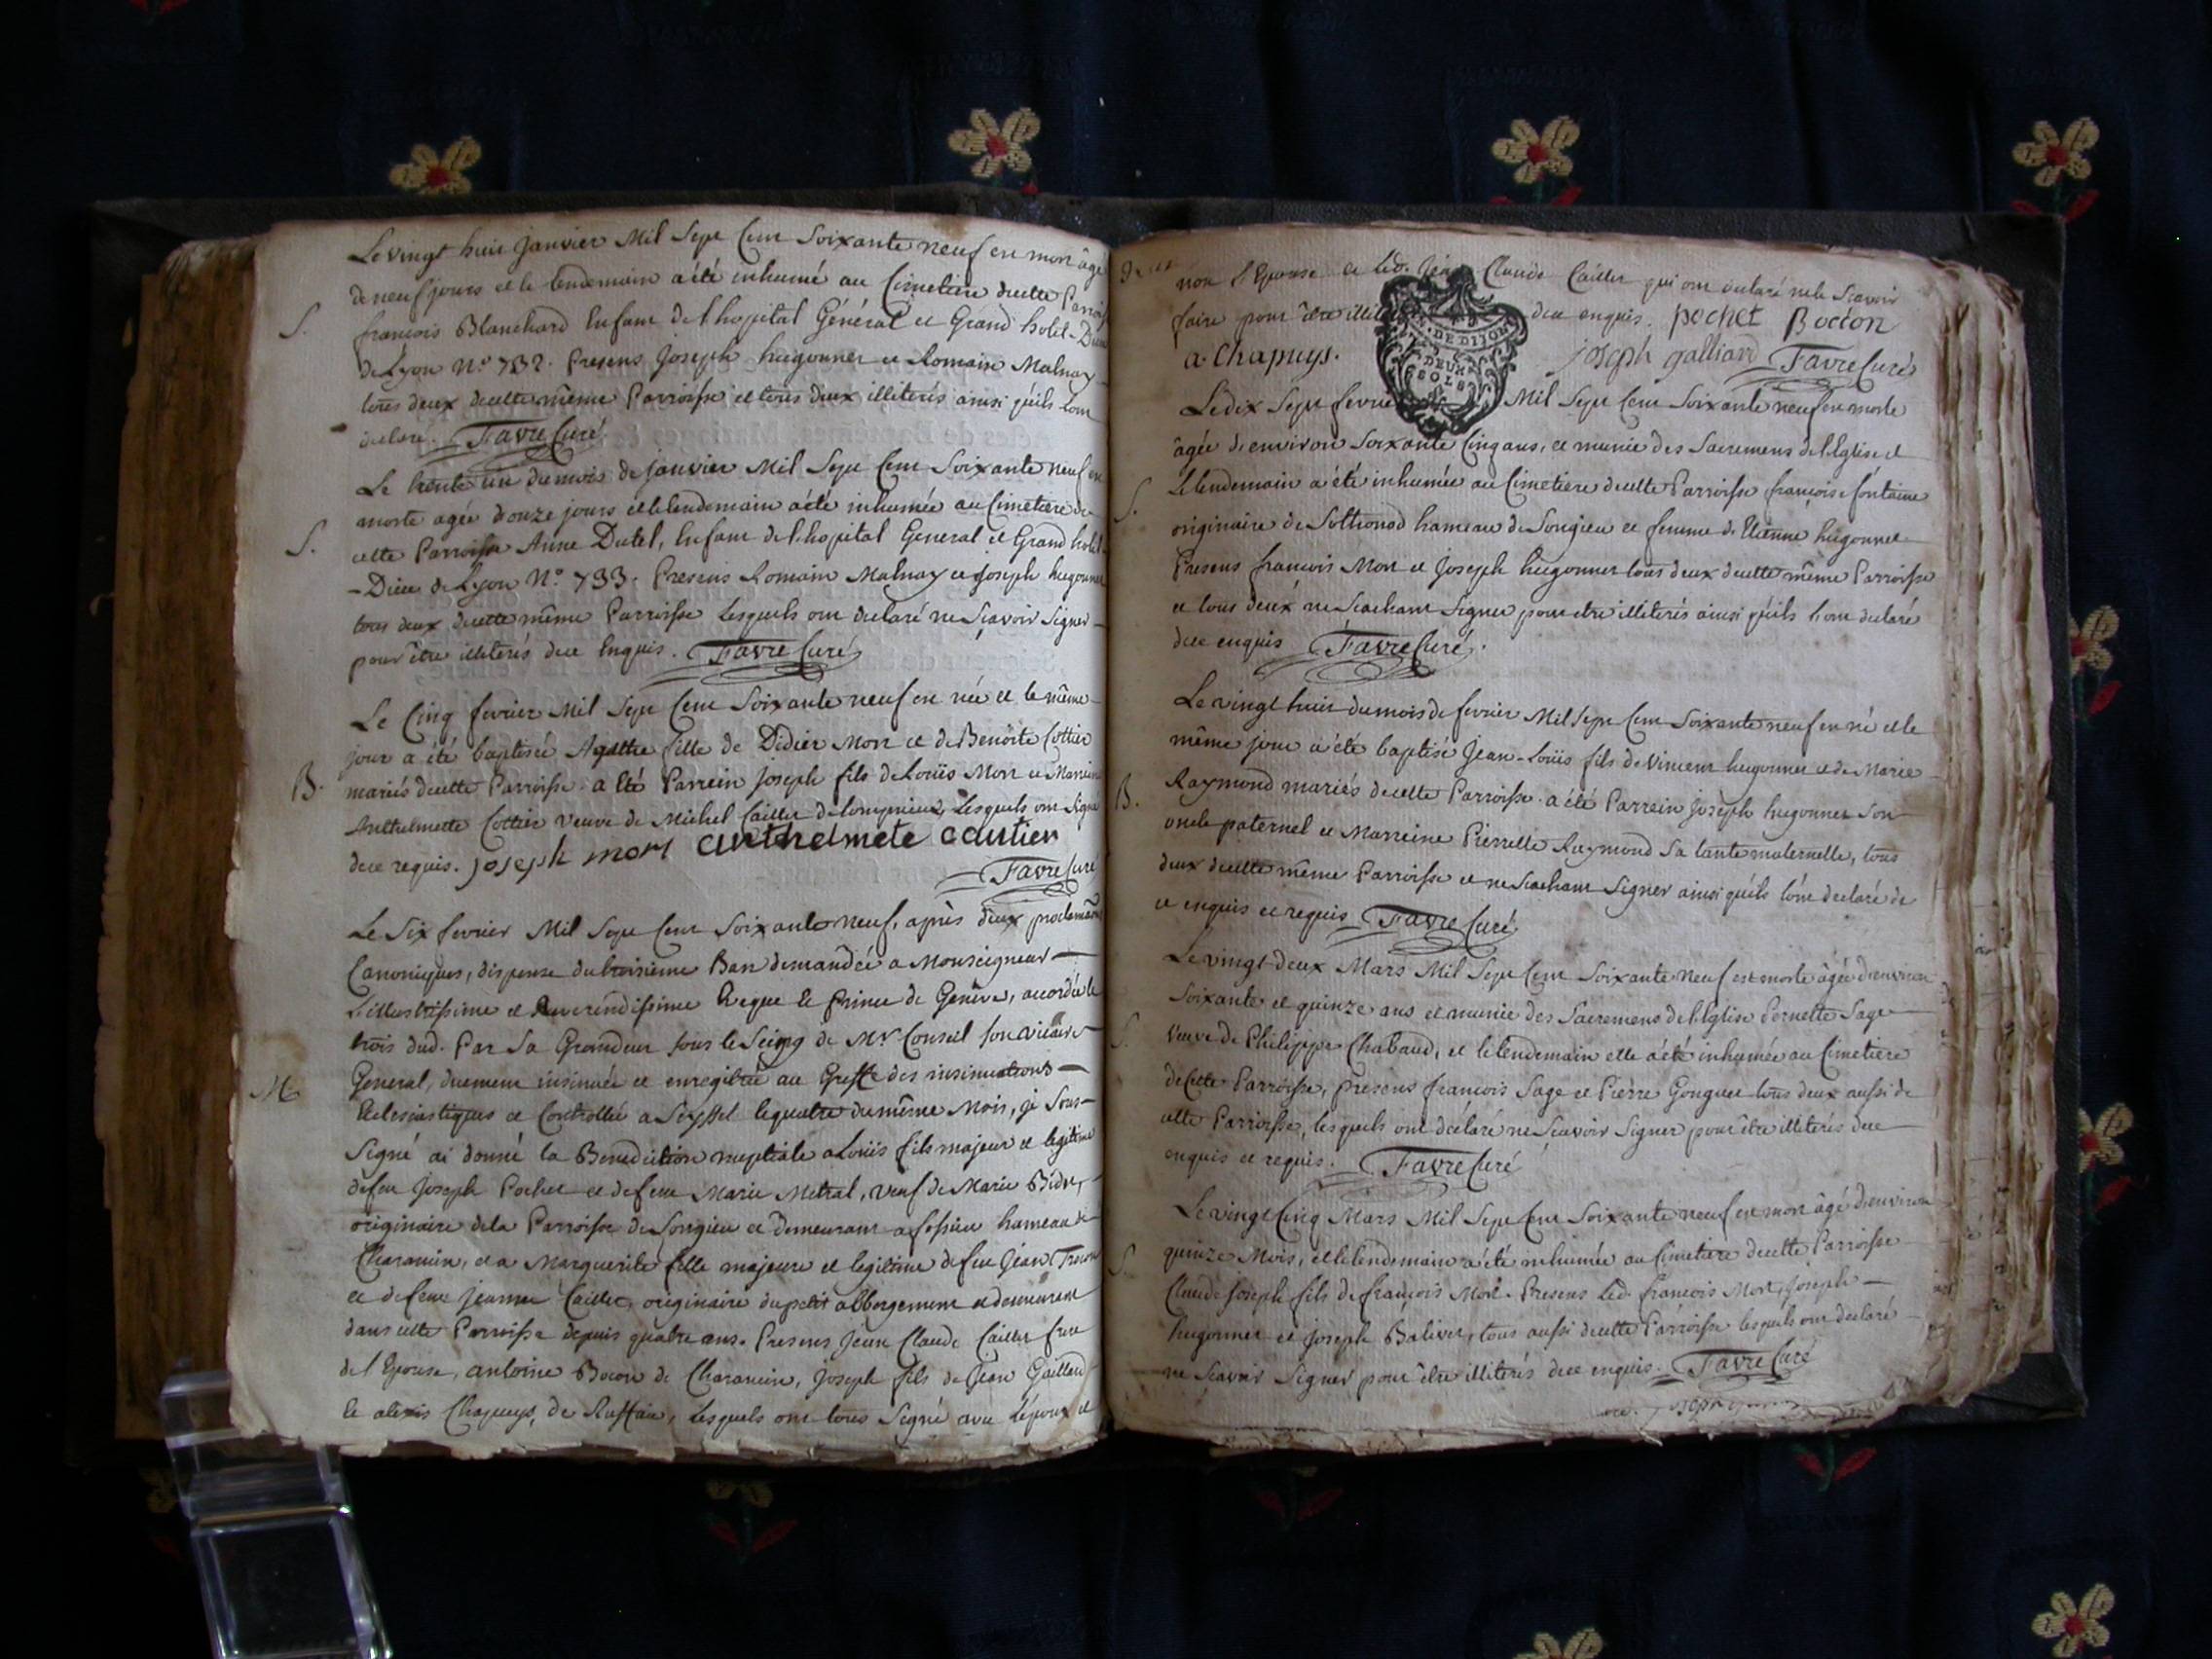 Le vingt huit janvier Mil Sept Cent Soixante neuf est mort âgé
de neuf jours et le lendemain a été inhumé au Cimetiere de cette Parroisse
S.
françois Blanchard Enfant de l'hopital Général et Grand hotel-Dieu
de Lyon N.º 732. Presens Joseph hugonnet et Romain Malnay
tous deux de cette même Parroisse et tous deux illiterés ainsi qu'ils l'ont
declaré. Favre Curé
Le trente un du mois de janvier Mil Sept Cent Soixante neuf est
morte agée douze jours et le lendemain a été inhumée au Cimetiere de
S.
cette Parroisse Anne Dutel, Enfant de l'hopital General et Grand hotel
-Dieu de Lyon N.º 733. Presens Romain Malnay et joseph hugonnet
tous deux de cette même Parroisse Lesquels ont declaré ne Scavoir Signer
pour être illiterés de ce Enquis. Favre Curé
Le Cinq fevrier Mil Sept Cent Soixante neuf est née et le même
jour a été baptisée Agathe fille de Didier Mort et de Benoite Cottier
B.
mariés de cette Parroisse. a Eté Parrein joseph fils de Loüis Mort et Marreine
Anthelmette Cottier veuve de Michel Caillet de Lompnieux, Lesquels ont Signé
de ce requis. joseph mort anthelmete cautier
Favre Curé
Le Six fevrier Mil Sept Cent Soixante neuf, après deux proclamâons
Canoniques, dispense du troisieme Ban demandée a Monseigneur
L'illustrissime et Reverendissime Eveque et Prince de Genêve, accordée le
trois dud. Par Sa Grandeur sous le Seing de Mr. Conseil son vicaire
M
General, duement insinuée et enregitrée au Greffe des insinuations
Eclesiastiques et Controllée a Seyssel le quatre du même Mois, je Sous-
Signé ai donné la Benediction nuptiale a Loüis fils majeur et legitime
de feu Joseph Pochet et de feue Marie Metral, veuf de Marie Bidet,
originaire de la Parroisse de Songieu et demeurant a fossieu hameau de
Charancin, et a Marguerite fille majeure et legitime de feu Jean
et de feue jeanne Caillet, originaire du petit abbergement et demeurant
dans cette Parroisse depuis quatre ans. Presens Jean Claude Caillet frere
de l'Epouse, antoine Bocon de Charancin, joseph fils de Jean Gaillard
et alexis Chapuys, de Ruffieu, Lesquels ont tous Signé avec l'époux et
non l'Epouse et led. Jean Claude Caillet qui ont declaré ne le Scavoir
faire pour être illiterés de ce enquis. pochet Bocon
DE DIJON
DEUX
SOLS
a. Chapuys. joseph galliard Favre Curé
Le dix Sept fevrier Mil Sept Cent Soixante neuf est morte
âgée d'environ Soixante Cinq ans, et munie des Sacremens de l'Eglise et
Le lendemain a été inhumée au Cimetiere de cette Parroisse françoise fontaine
S.
originaire de Sothonod hameau de Songieu et femme de Etienne hugonnet
Presens françois Mort et Joseph hugonnet tous deux de cette même Parroisse
et tous deux ne Scachant Signer pour etre illiterés ainsi qu'ils l'ont declaré
de ce enquis Favre Curé.
Le vingt huit du mois de fevrier Mil Sept Cent Soixante neuf est né et le
même jour a été baptisé Jean-Loüis fils de Vincent hugonnet et de Marie
B.
Raymond mariés de cette Parroisse. a été Parrein joseph hugonnet Son
oncle paternel et Marreine Pierrette Raymond Sa tante maternelle, tous
deux de cette même Parroisse et ne Scachant Signer ainsi qu'ils l'ont declaré de
ce enquis et requis Favre Curé
Le vingt-deux Mars Mil Sept Cent Soixante Neuf est morte âgée d'environ
Soixante et quinze ans et munie des Sacremens de l'Eglise Pernette Sage
S.
veuve de Philippe Chabaud, et le lendemain elle a été inhumée au Cimetiere
de Cette Parroisse, presens françois Sage et Pierre Gonguet tous deux aussi de
cette Parroisse, lesquels ont déclaré ne Scavoir Signer pour être illiterés de ce
enquis et requis. Favre Curé
Le vingt Cinq Mars Mil Sept Cent Soixante neuf est mort âgé d'environ
quinze Mois, et le lendemain a été inhumé au Cimetiere de cette Parroisse
S.
Claude Joseph fils de françois Mort. Presens Led. françois Mort, Joseph
hugonnet et joseph Balivet, tous aussi de cette Parroisse lesquels ont declaré
ne Scavoir Signer pour être illiterés de ce enquis. Favre Curé